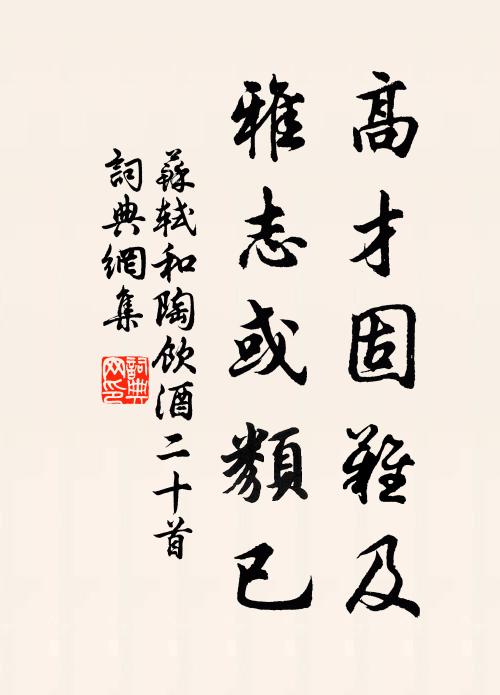 高才固難及
雅志或類已
蘇軾和陶飲酒二十首
詞典網集
詞典网印